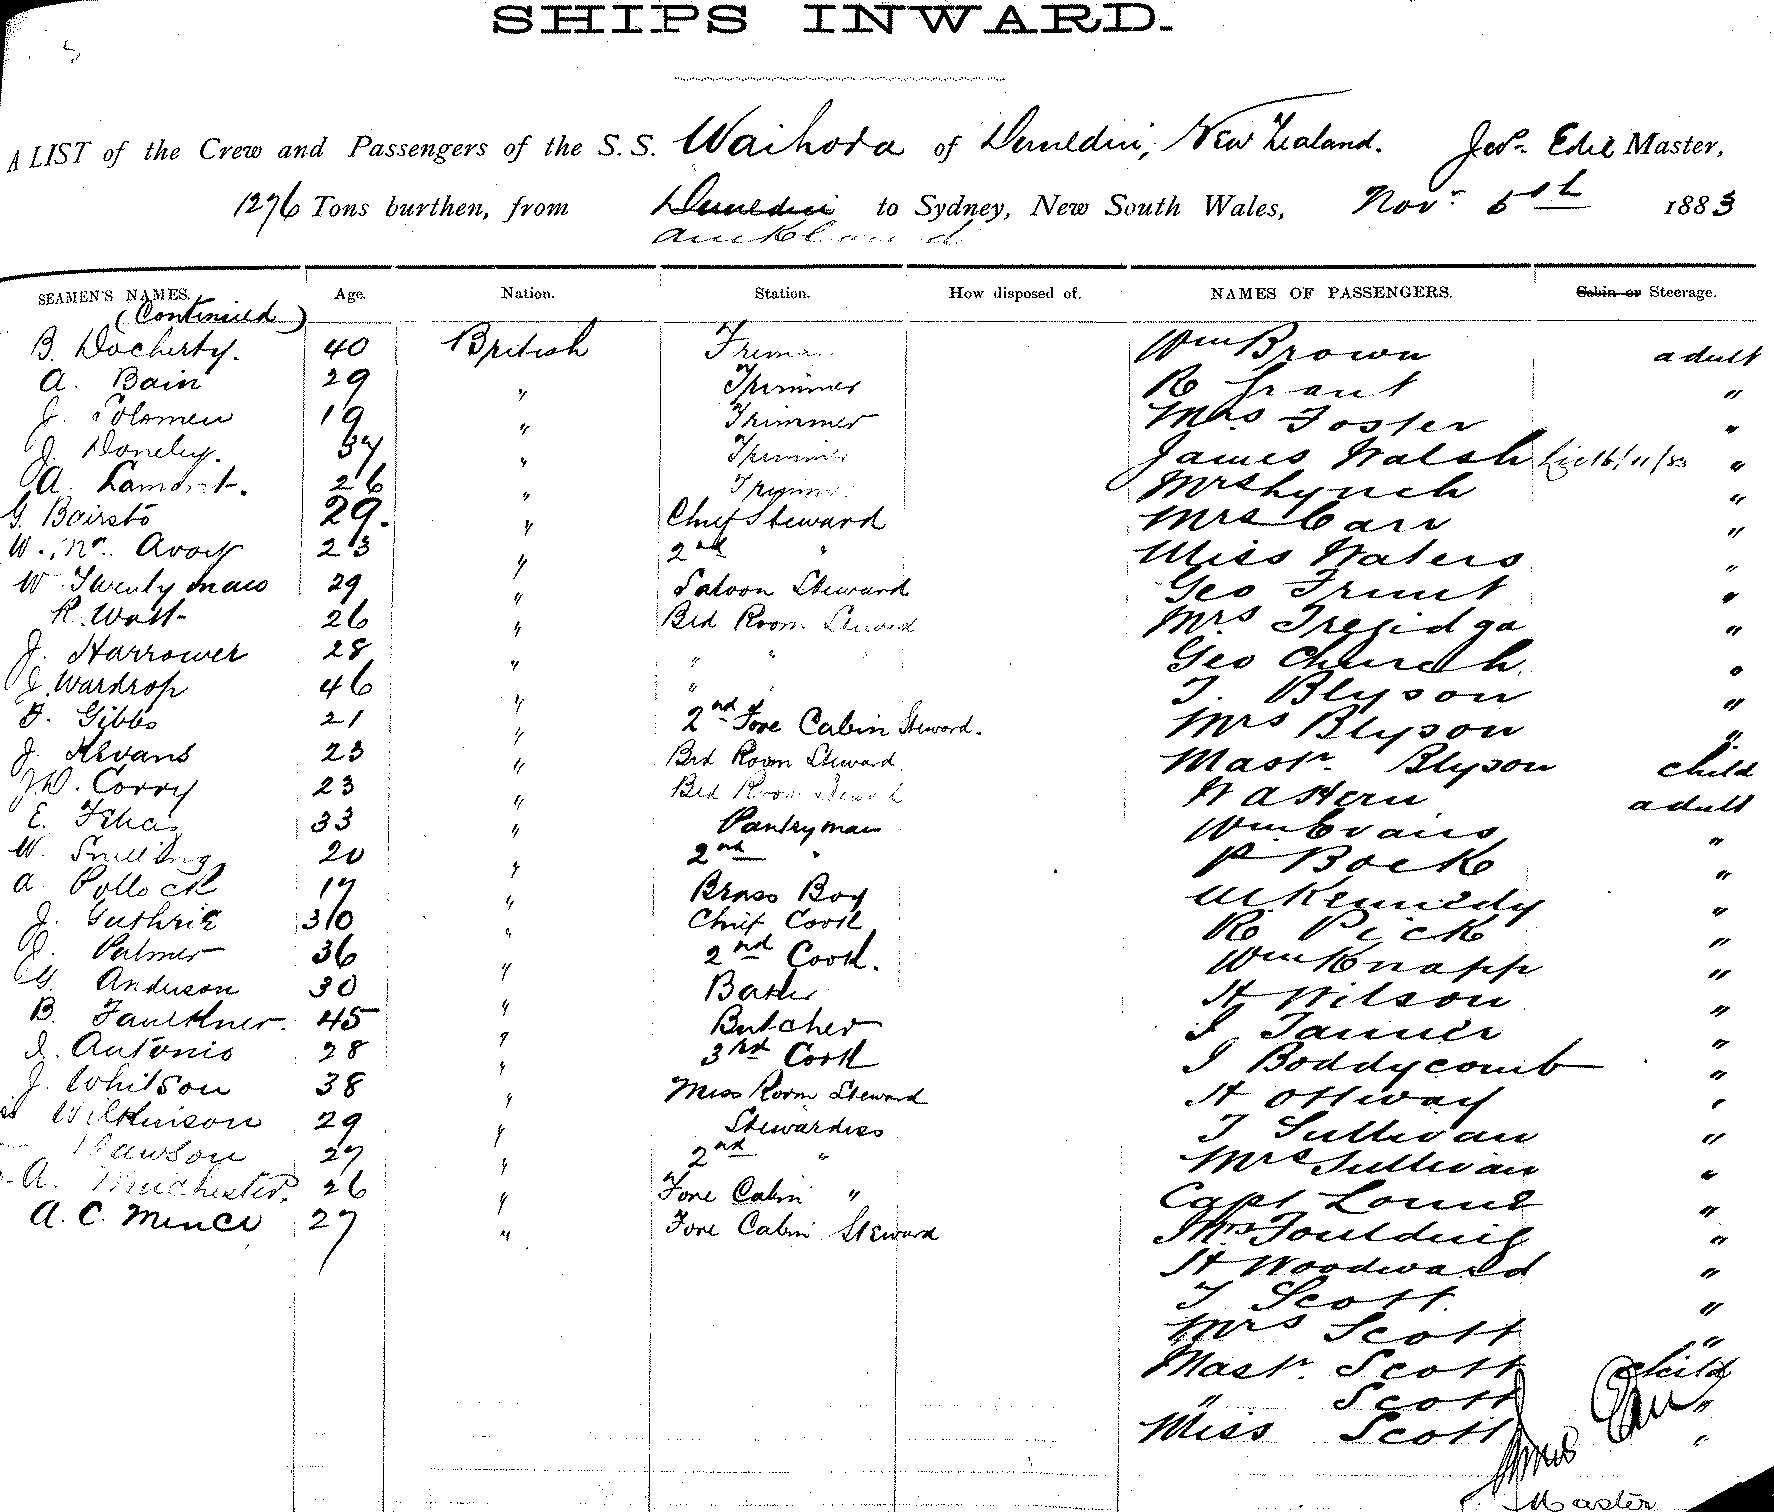 SHIPS INWARD.
A LIST of the Crew and Passengers of the S.S. Waihora of Dunedin, New Zealand. Jas. Edie Master,
1276 Tons burthen, from Dunedin to Sydney, New South Wales, Nov. 5th 1883
Auckland
SEAMEN'S NAMES. Age. Nation. Station. How disposed of. NAMES OF PASSENGERS. Cabin or Steerage.
(Continued)
B. Docherty. 40 British Firema Wm Brown adult
A. Bain 29 " Trimmer R Grant "
J. Solomen 19 " Trimmer Mrs Foster "
J. Doneley. 37 " Trimmer James Walsh "
A. Lamont. 26 " Trimmer Mrs Lynch "
G. Bairsto 29. " Chief Steward Mrs Carr "
W. Avoy 23 " 2nd " Miss Waters "
W Twentyman 29 " Saloon Steward Geo Trunt "
R. Watt 26 " Bed Room Steward Mrs Tregidga "
J. Harrower 28 " " " Geo Church "
J. Wardrop 46 " " T. Blyson "
Gibbs 21 " 2nd Fore Cabin Steward. Mrs Blyson "
J. Kevans 23 " Bed Room Steward Mastr. Blyson child
J.W. Corry 23 " Bed Room Steward W Astern adult
E. 33 " Pantryman Wm Evans "
W. Snelling 20 " 2nd " P Bock "
A. Pollock 17 " Brass Boy M Kennedy "
J. Guthrie 30 " Chief Cook R Pick "
J. Palmer 36 " 2nd Cook. Wm Knapp "
G. Anderson 30 " Baker H Wilson "
B. Faulkner. 45 " Butcher J Tanner "
J. Antonio 28 " 3rd Cook J Boddycomb "
J. Whitson 38 " Mess Room Steward H Ottway "
Wilkinson 29 " Stewardess T Sullivan "
Dawson 27 " 2nd " Mrs Sullivan "
A. Minchester. 26 " Fore Cabin " Capt Lowne "
A. C. Mence 27 " Fore Cabin Steward Mrs Foulding "
H Woodward "
T Scott. "
Mrs Scott "
Mastr. Scott child
" Scott "
Miss Scott "
James Edie
Master